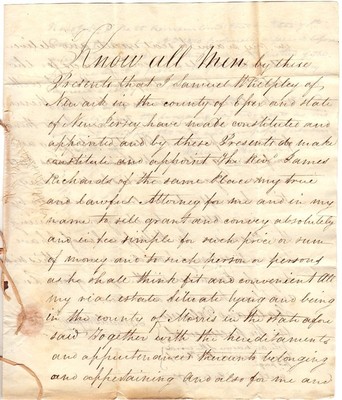 Know all Men by these
Presents that I Samuel Whelpley of
Newark in the county of Essex and state
of New Jersey have made constituted and
appointed and by these Presents do make
constitute and appoint The Revd James
Richards of the same Place my true
and lawful Attorney for me and in my
name to sell grant and convey absolutely
and in fee simple for such price or sum
of money and to such person or persons
as he shall think fit and convenient All
my real estate situate lying and being
in the county of Morris in the state afore
said Together with the hereditaments
and appurtenances thereunto belonging
and appertaining and also for me and